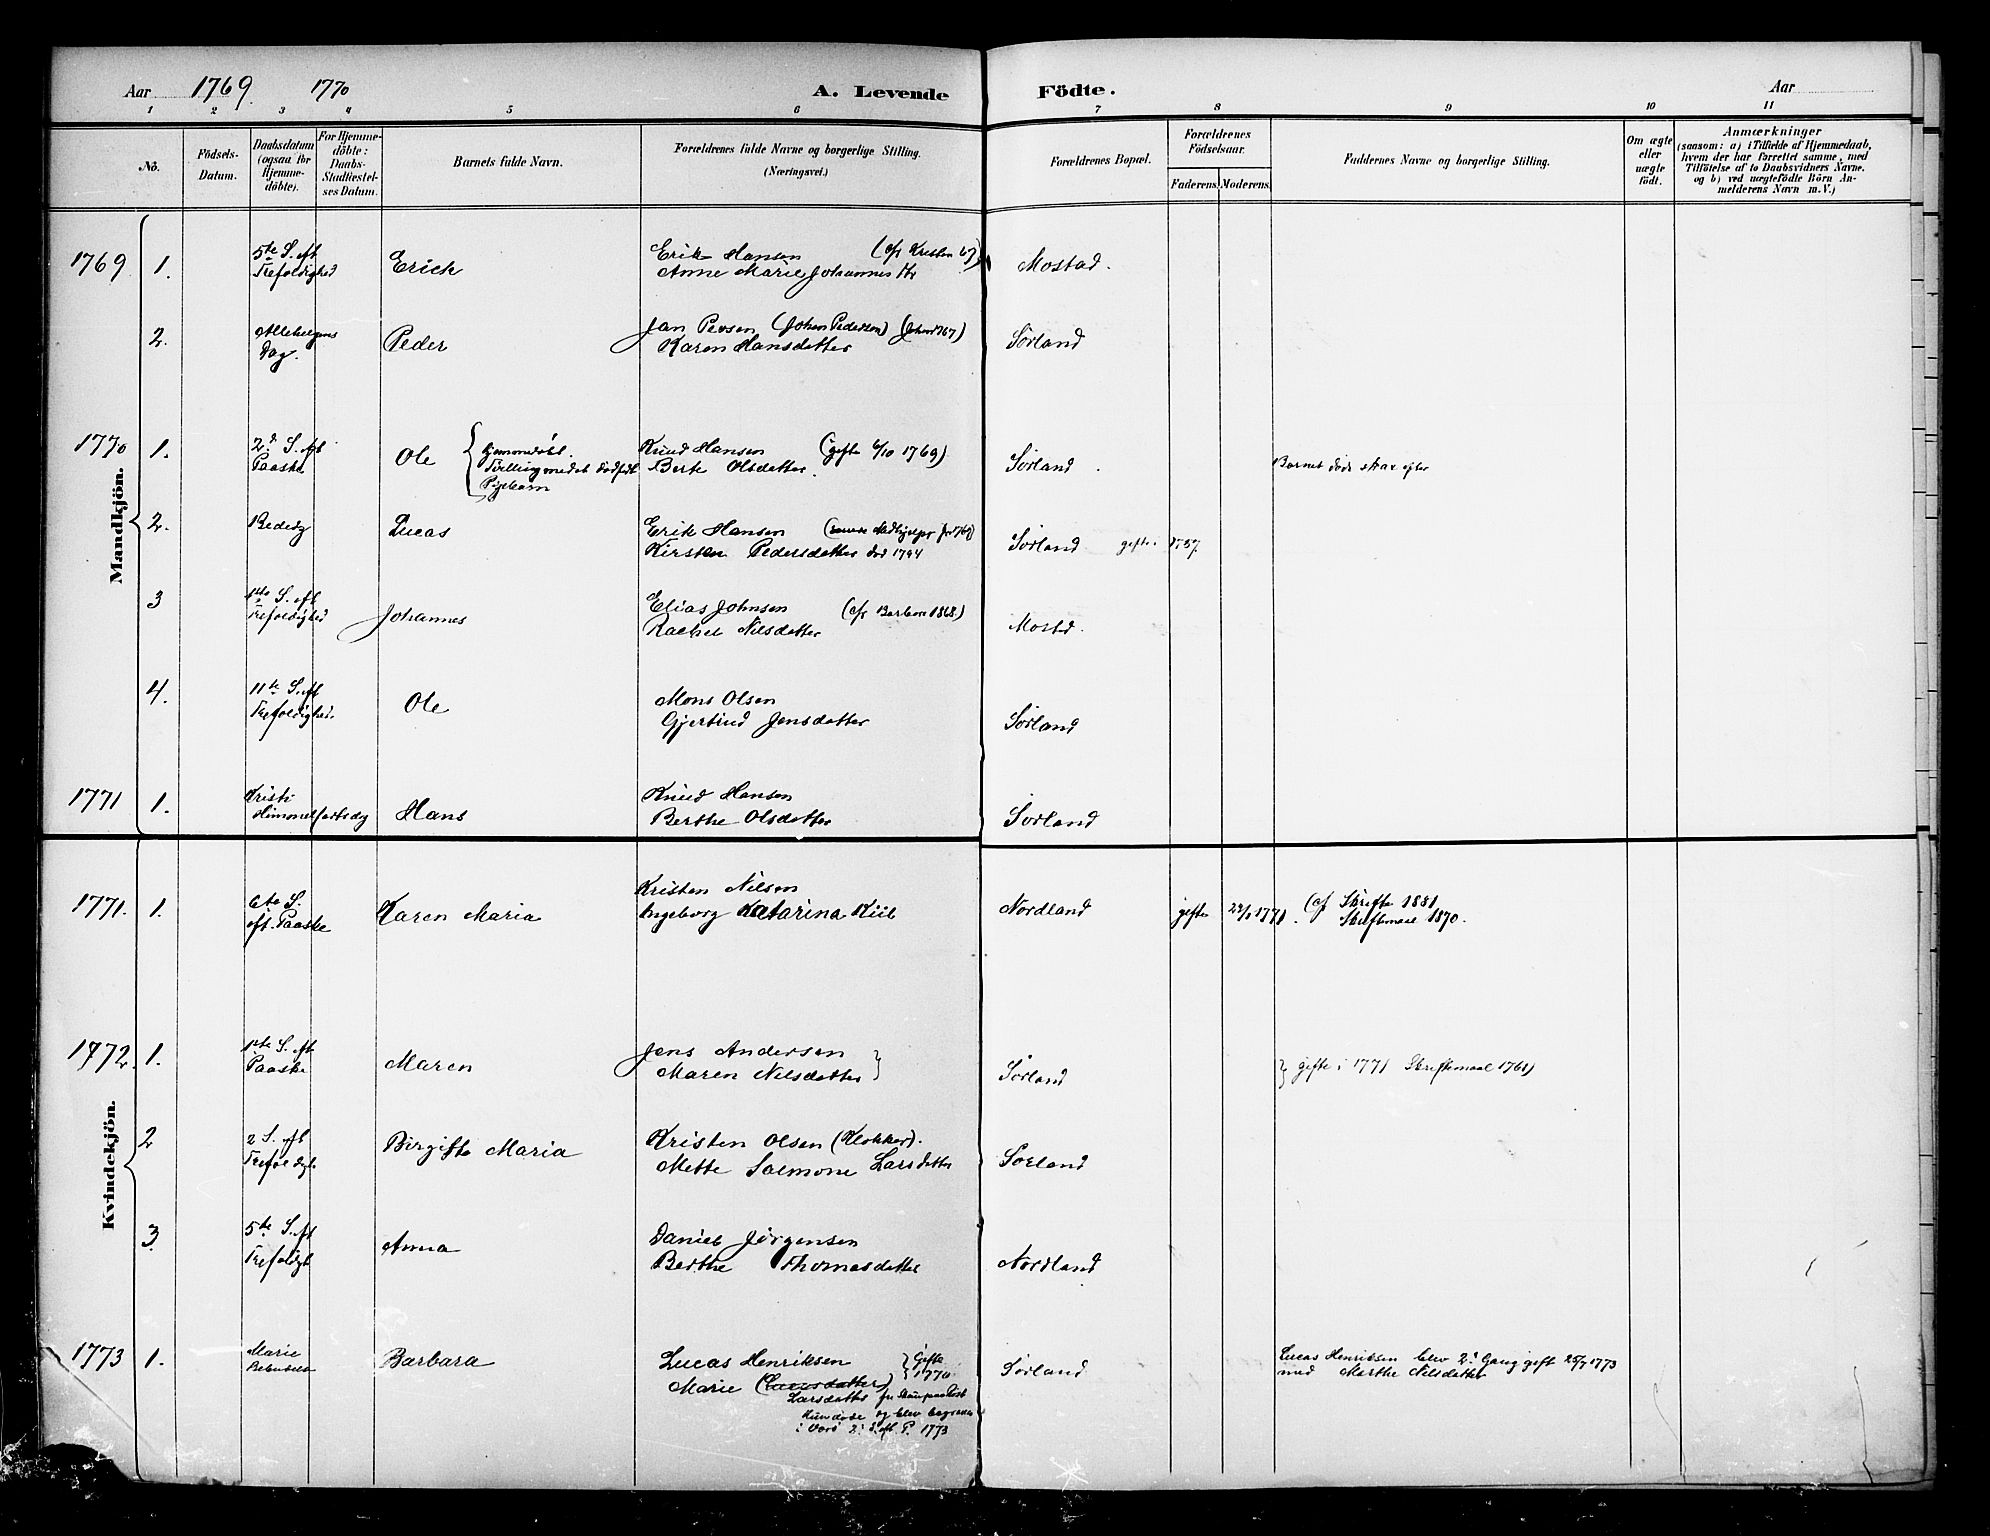 Aar 1769. 1770 A. Levende Födte. Aar
1 2 3 4 5 6 7 8 9 10 11
No. Födsels-Datum. Daabsdatum (ogsaa for Hjemme-döbte). For Hjemme-döbte: Daabs-Stadfæstel-ses Datum. Barnets fulde Navn. Forældrenes fulde Navne og borgerlige Stilling. (Næringsvei.) Forældrenes Bopæl. Forældrenes Födselsaar. Faderens. Moderens. Faddernes Navne og borgerlige Stilling. Om ægte eller uægte födt. Anmærkninger (saasom: a) i Tilfælde af Hjemmedaab, hvem der har forrettet samme, med Tilföielse af to Daabsvidners Navne, og b) ved uægtefödte Börn An-melderens Navn m. V.)
Mandkjön.
1769 1. 5te S. eft Erich Erik Hansen (cfr Kristen 67)
Trefoldighed Anne Marie Johannes Dtr Mostad.
2. Allehelgens Peder Jan Persen (Johan Pedersen)
Dag. Karen Hansdatter Sørland
1770 1. 2d S. eft Ole hjemmedøbt Knud Hansen (gifte 6/10 1769)
Paaske Tvilling med et dødfødt Berte Olsdatter. Sørland. Barnet døde strax efter
Pigebarn
2. Bededg Lucas Erik Hansen
Kirsten Pedersdatter død 1794 Sørland gifte i 1757.
3 14de S. eft Johannes Elias Johnsen (cfr Barbara 1868)
Trefoldighed Rachel Nilsdatter Mostd.
4. 11te S. eft Ole Mons Olsen
Trefoldighed. Gjertrud Jensdatter Sørland
1771 1. Kristi Hans Knud Hansen
Himmelfartsdg Berthe Olsdatter Sørland
Kvindekjön.
1771. 1. 6te S. Karen Maria Kristen Nilsen
eft. Paaske Ingeborg Katarina Kiil Nordland gifte 1771. (cf Skrifte 1881
Skriftemaal 1870.
1772. 1. 1ste S. eft Maren Jens Andersen
Paaske Maren Nilsdatter Sørland gifte i 1771 Skriftemaal 1761)
2 2 S. eft Birgitte Maria Kristen Olsen (Klokker).
Trefoldgh Mette Salmone Larsdatter Sørland
3. 5te S. eft Anna Daniel Jörgensen
Trefoldgh Berthe Thomasdatter Nordland
1773 1. Marie Barbara Lucas Henriksen Gifte 1770. Lucas Henriksen blev 2: Gang gift 25/7 1773
Bebudelse Marie Sørland med Marthe Nilsdatter
Larsdatter
Hun døde og blev begravet
i Værø 2: S. eft P. 1773